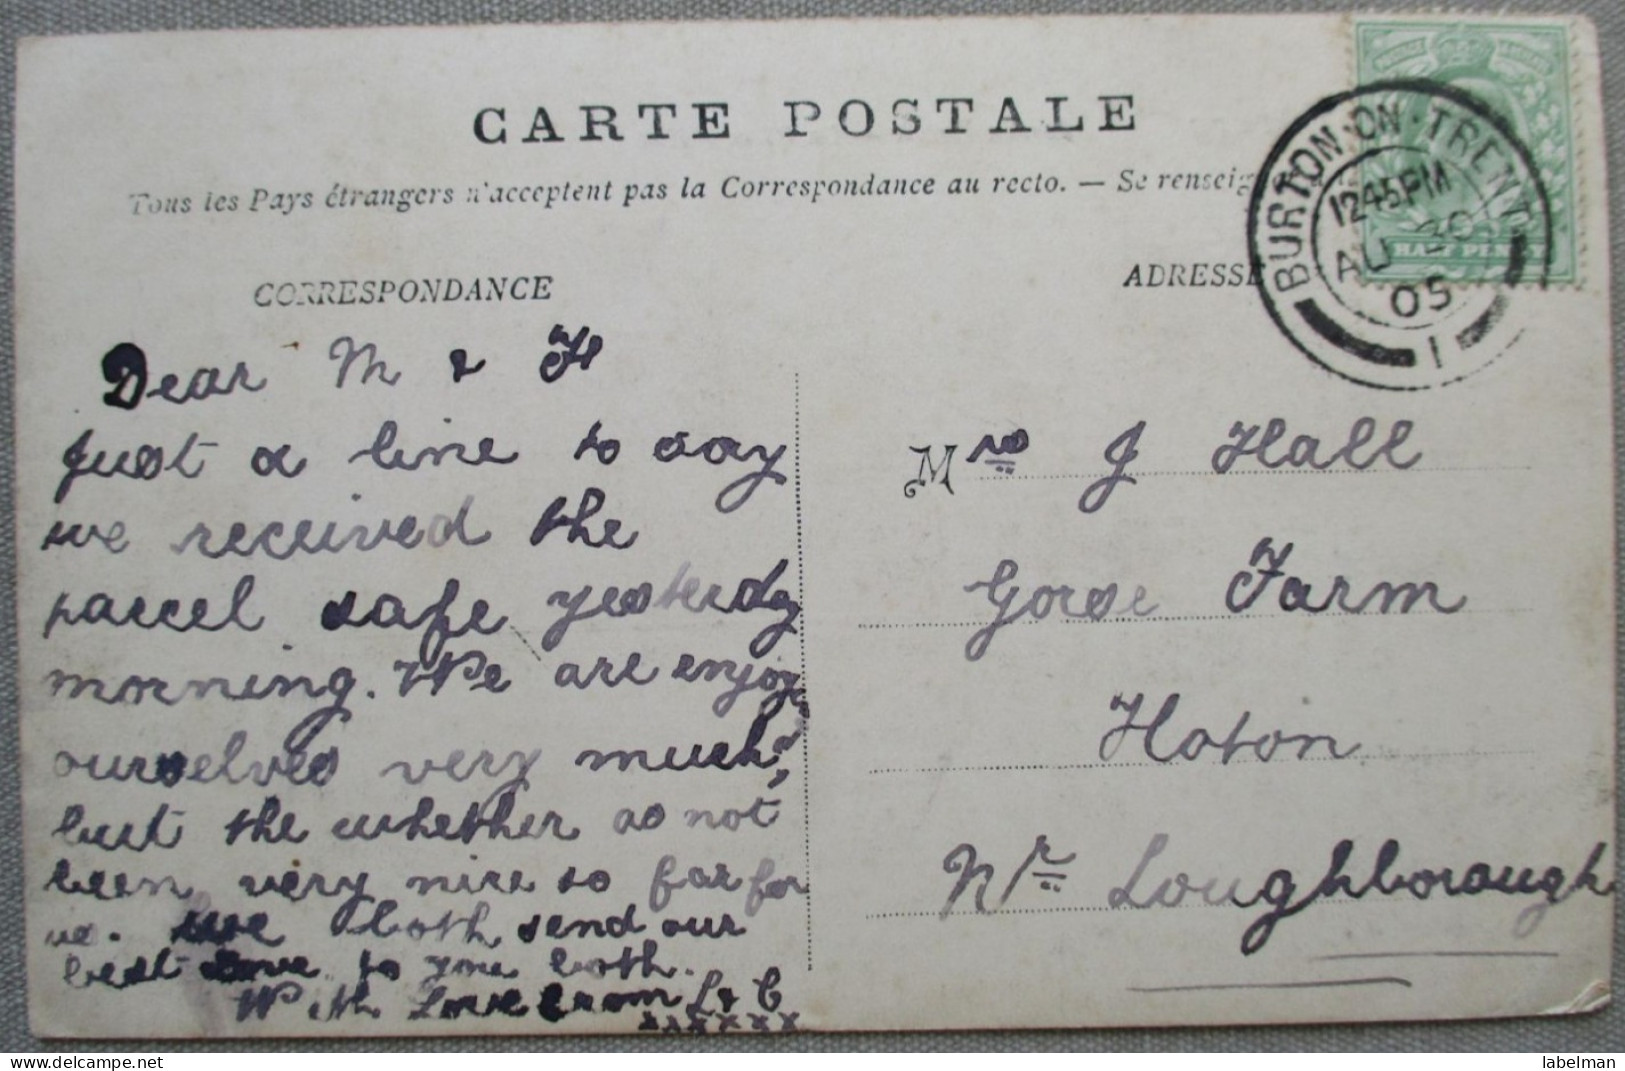 CARTE POSTALE
Tous les Pays étrangers n'acceptent pas la Correspondance au recto. — Se renseig
BURTON·ON·TRENT
1245PM
AU 30
05
1
HALF PENNY
CORRESPONDANCE
Dear M & F
Just a line to say
we received the
parcel safe yesterday
morning. We are enjoy
ourselves very much,
but the whether as not
been very nice so far for
us. we both send our
best Love to you both.
With Love from L & C
xxxxxxx
ADRESSE
Mrs J Hall
Gorse Farm
Hoton
Nr Loughborough
labelman
delcampe.net